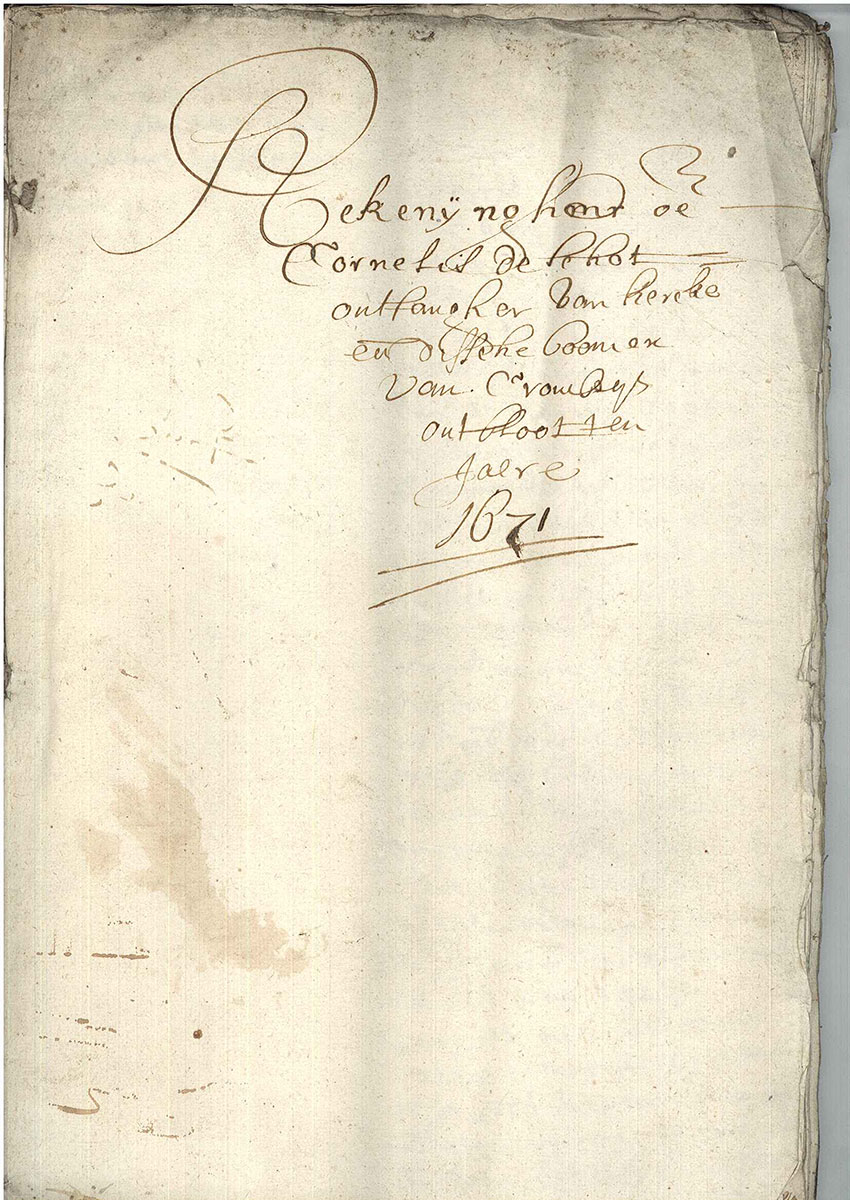 Rekenÿngh
Cornelis de schot
ontfangher van kercke
en dissche boomen
van Crombeys
ontbloot ten
Jaere
1671